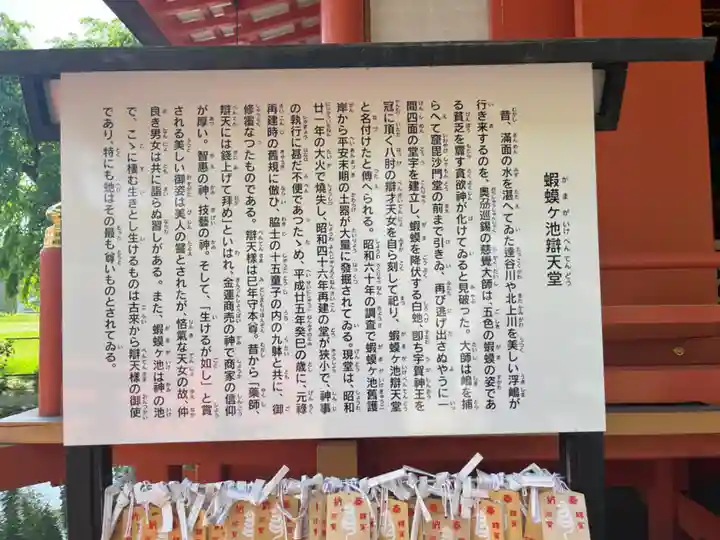 蝦蟆ヶ池辯天堂
昔、滿面の水を湛へてゐた達谷川や北上川を美しい浮嶋が
行き来するのを、奥刕巡錫の慈覺大師は、五色の蝦蟆の姿であ
る貧乏を齎す貪欲神が化けてゐると見破つた。大師は嶋を捕
らへて窟毘沙門堂の前まで引きゐ、再び逃げ出さぬやうに一
間四面の堂宇を建立し、蝦蟆を降伏する白虵、卽ち宇賀神王を
冠に頂く八肘の辯才天女を自ら刻して祀り、蝦蟆ヶ池辯天堂
と名付けたと傳へられる。昭和六十年の調査で蝦蟆ヶ池舊護
岸から平安末期の土器が大量に發掘されてゐる。現堂は、昭和
廿一年の大火で燒失し、昭和四十六年再建の堂が狹小で、神事
の執行に甚だ不便であつたため、平成廿五年癸巳の歳に、元祿
再建時の舊規に倣ひ、脇士の十五童子の内の九躰と共に、御
修覆なつたものである。辯天樣は巳年守本尊。昔から「藥師、
辯天には錢上げて拜め」といはれ、金運商売の神で商家の信仰
が厚い。智惠の神、技藝の神。そして、「生けるが如し」と賞
される美しい御姿は美人の譽とされたが、悋氣な天女の故、仲
良き男女は共に詣らぬ習しがある。また、蝦蟆ヶ池は神の池
で、こゝに棲む生きとし生けるものは古來から辯天樣の御使
であり、特にも虵はその最も尊いものとされてゐる。